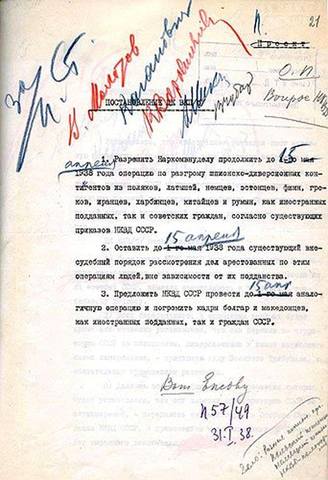 П. 21
Проект
за И. Ст.
В. Молотов
Каганович
К Ворошилов
О.П.
ПОСТАНОВЛЕНИЕ ЦК ВКП/б/
апреля 15
1. Разрешить Наркомвнуделу продолжить до 1-го мая
1938 года операцию по разгрому шпионско-диверсионных кон-
тингентов из поляков, латышей, немцев, эстонцев, финн, гре-
ков, иранцев, харбинцев, китайцев и румын, как иностранных
подданных, так и советских граждан, согласно существующих
приказов НКВД СССР.
15 апреля
2. Оставить до 1-го мая 1938 года существующий вне-
судебный порядок рассмотрения дел арестованных по этим
операциям людей, вне зависимости от их подданства.
15 апр
3. Предложить НКВД СССР провести до 1-го мая анало-
гичную операцию и погромить кадры болгар и македонцев,
как иностранных подданных, так и граждан СССР.
Ежову
П57/49
31.I.38.